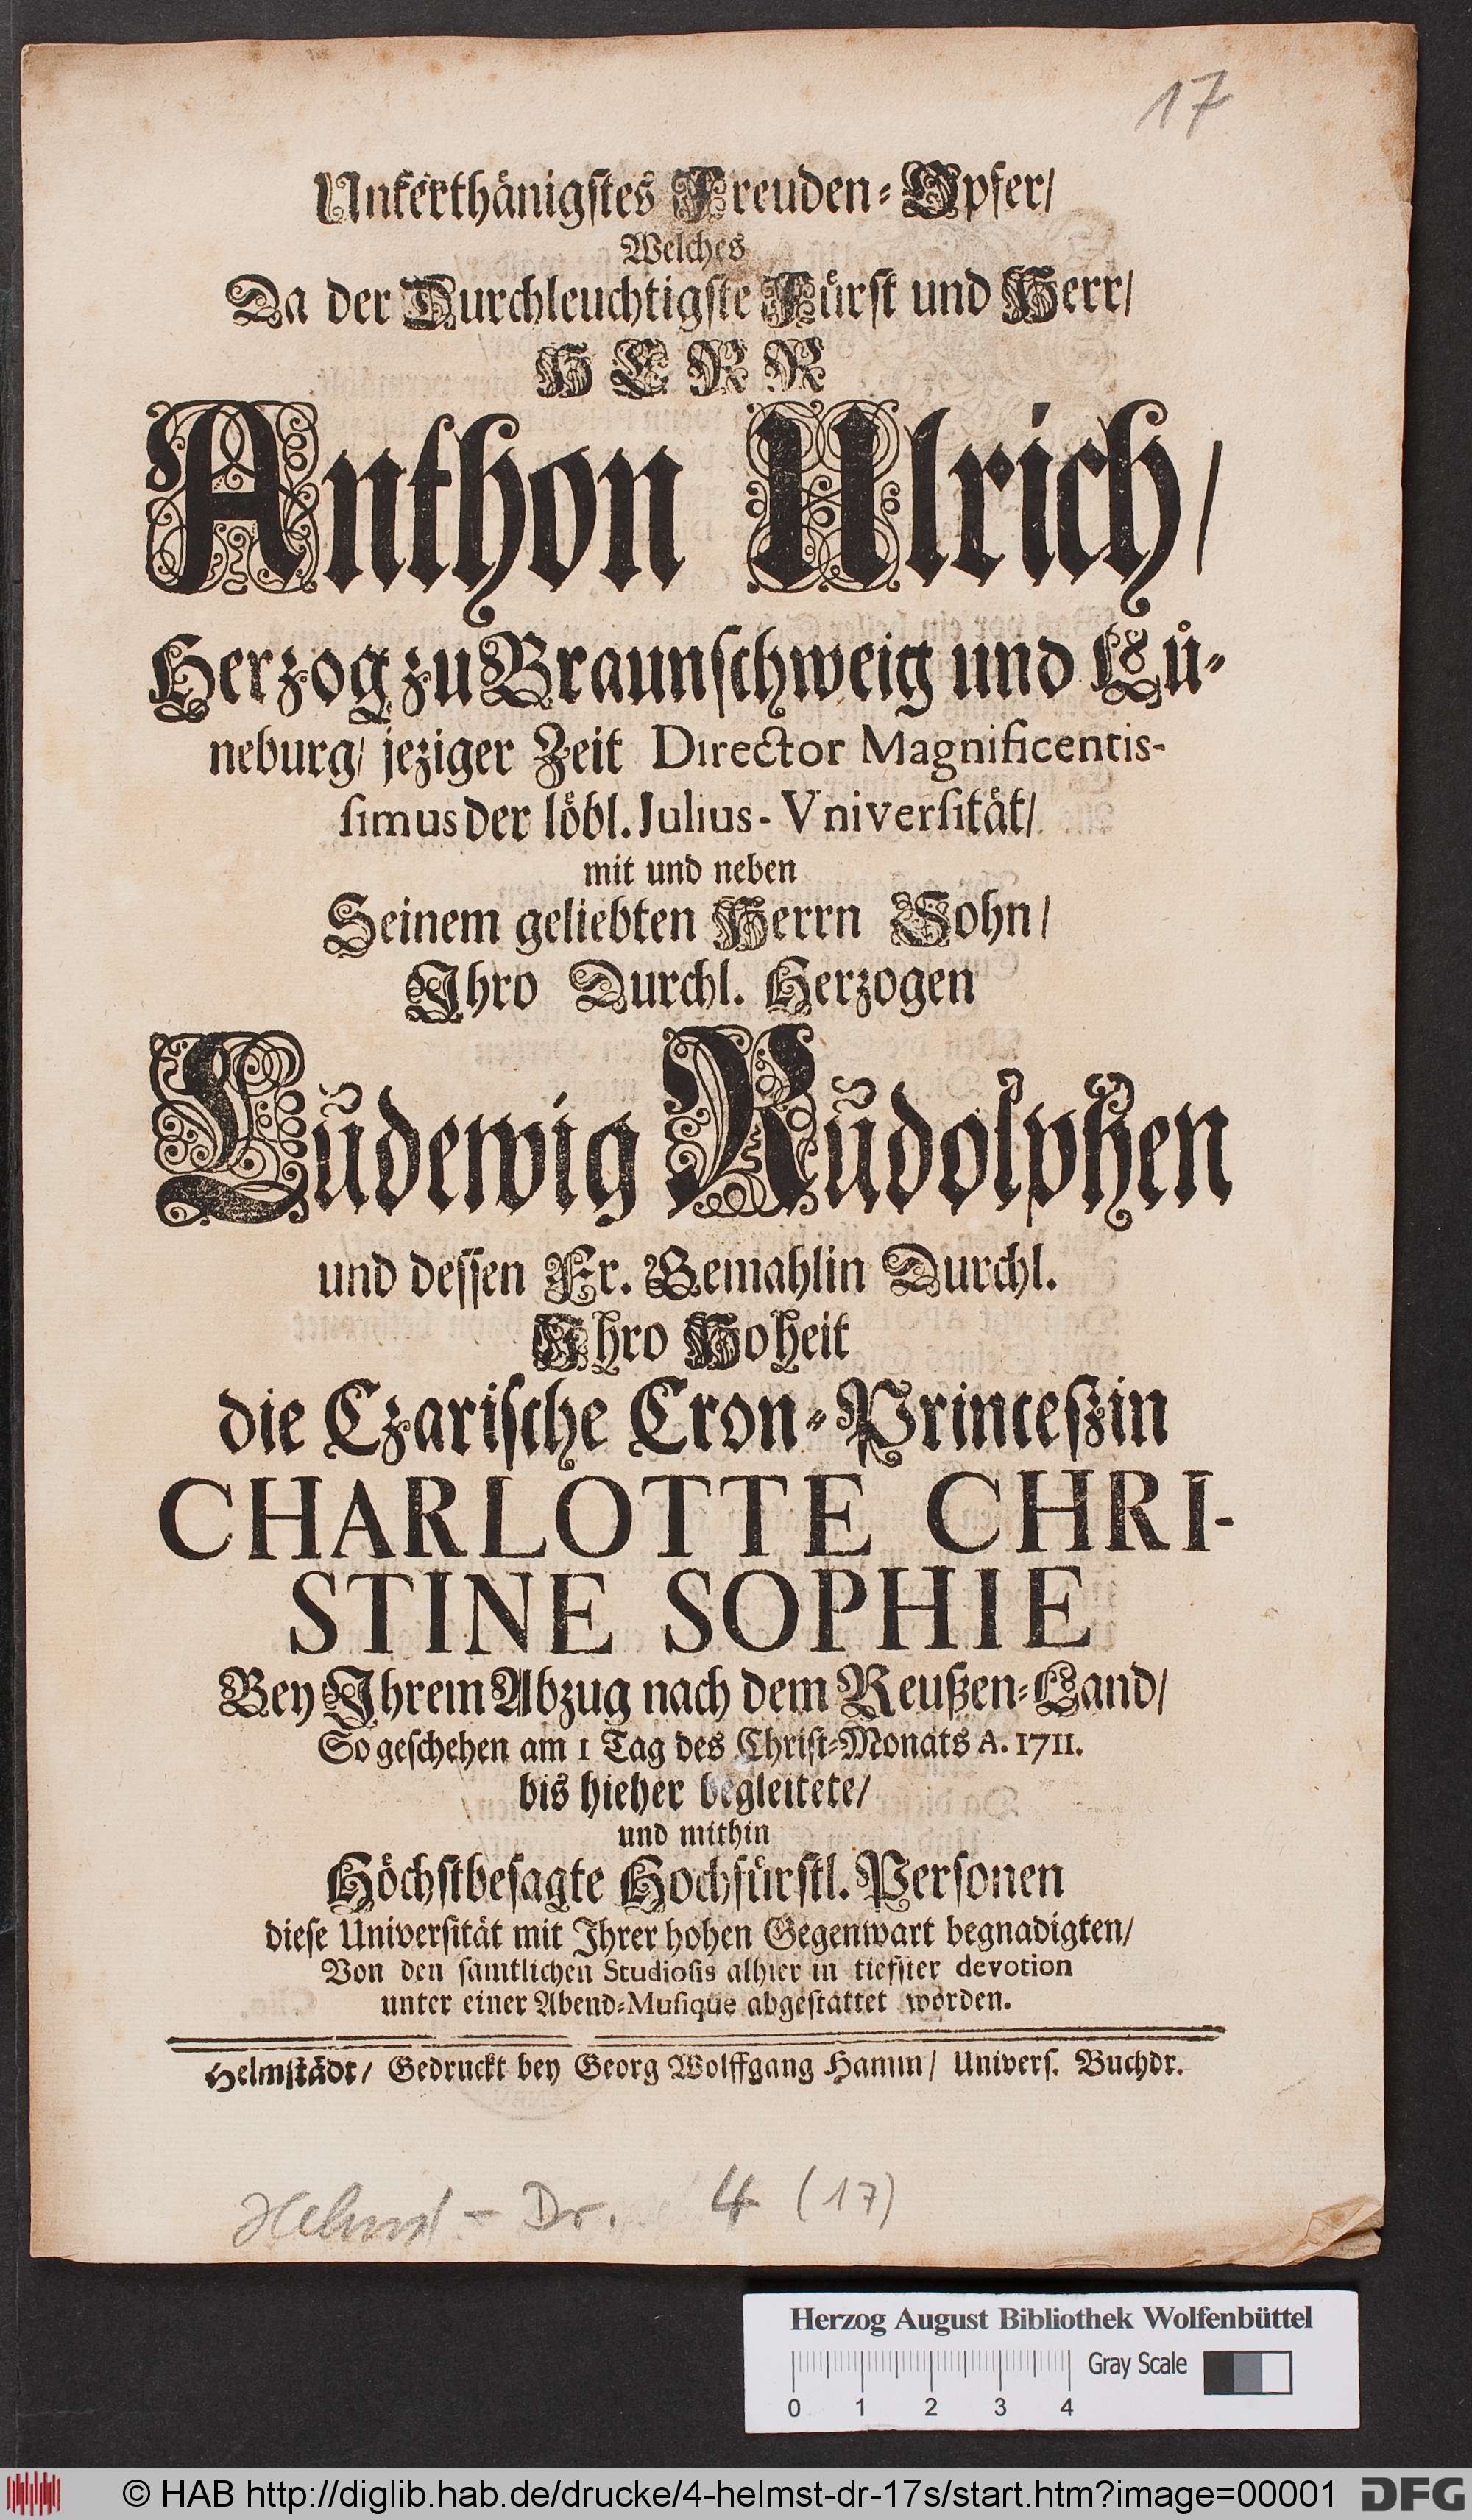 17
Unterthänigstes Freuden-Opfer/
Welches
Da der Durchleuchtigste Fürst und Herr/
HERR
Anthon Ulrich/
Herzog zu Braunschweig und Lü-
neburg/ jeziger Zeit Director Magnificentis-
simus der löbl. Julius-Vniversität/
mit und neben
Seinem geliebten Herrn Sohn/
Ihro Durchl. Herzogen
Ludewig Rudolphen
und dessen Fr. Gemahlin Durchl.
Ihro Hoheit
die Czarische Cron-Princeßin
CHARLOTTE CHRI-
STINE SOPHIE
Bey Ihrem Abzug nach dem Reußen-Land/
So geschehen am 1 Tag des Christ-Monats A. 1711.
bis hieher begleitete/
und mithin
Höchstbesagte Hochfürstl. Personen
diese Universität mit Ihrer hohen Gegenwart begnadigten/
Von den sämtlichen Studiosis alhier in tiefster devotion
unter einer Abend-Musique abgestattet worden.
Helmstädt/ Gedruckt bey Georg Wolffgang Hamm/ Univers. Buchdr.
Helmst-Dr. 4 (17)
Herzog August Bibliothek Wolfenbüttel
Gray Scale
0 1 2 3 4
© HAB http://diglib.hab.de/drucke/4-helmst-dr-17s/start.htm?image=00001 DFG